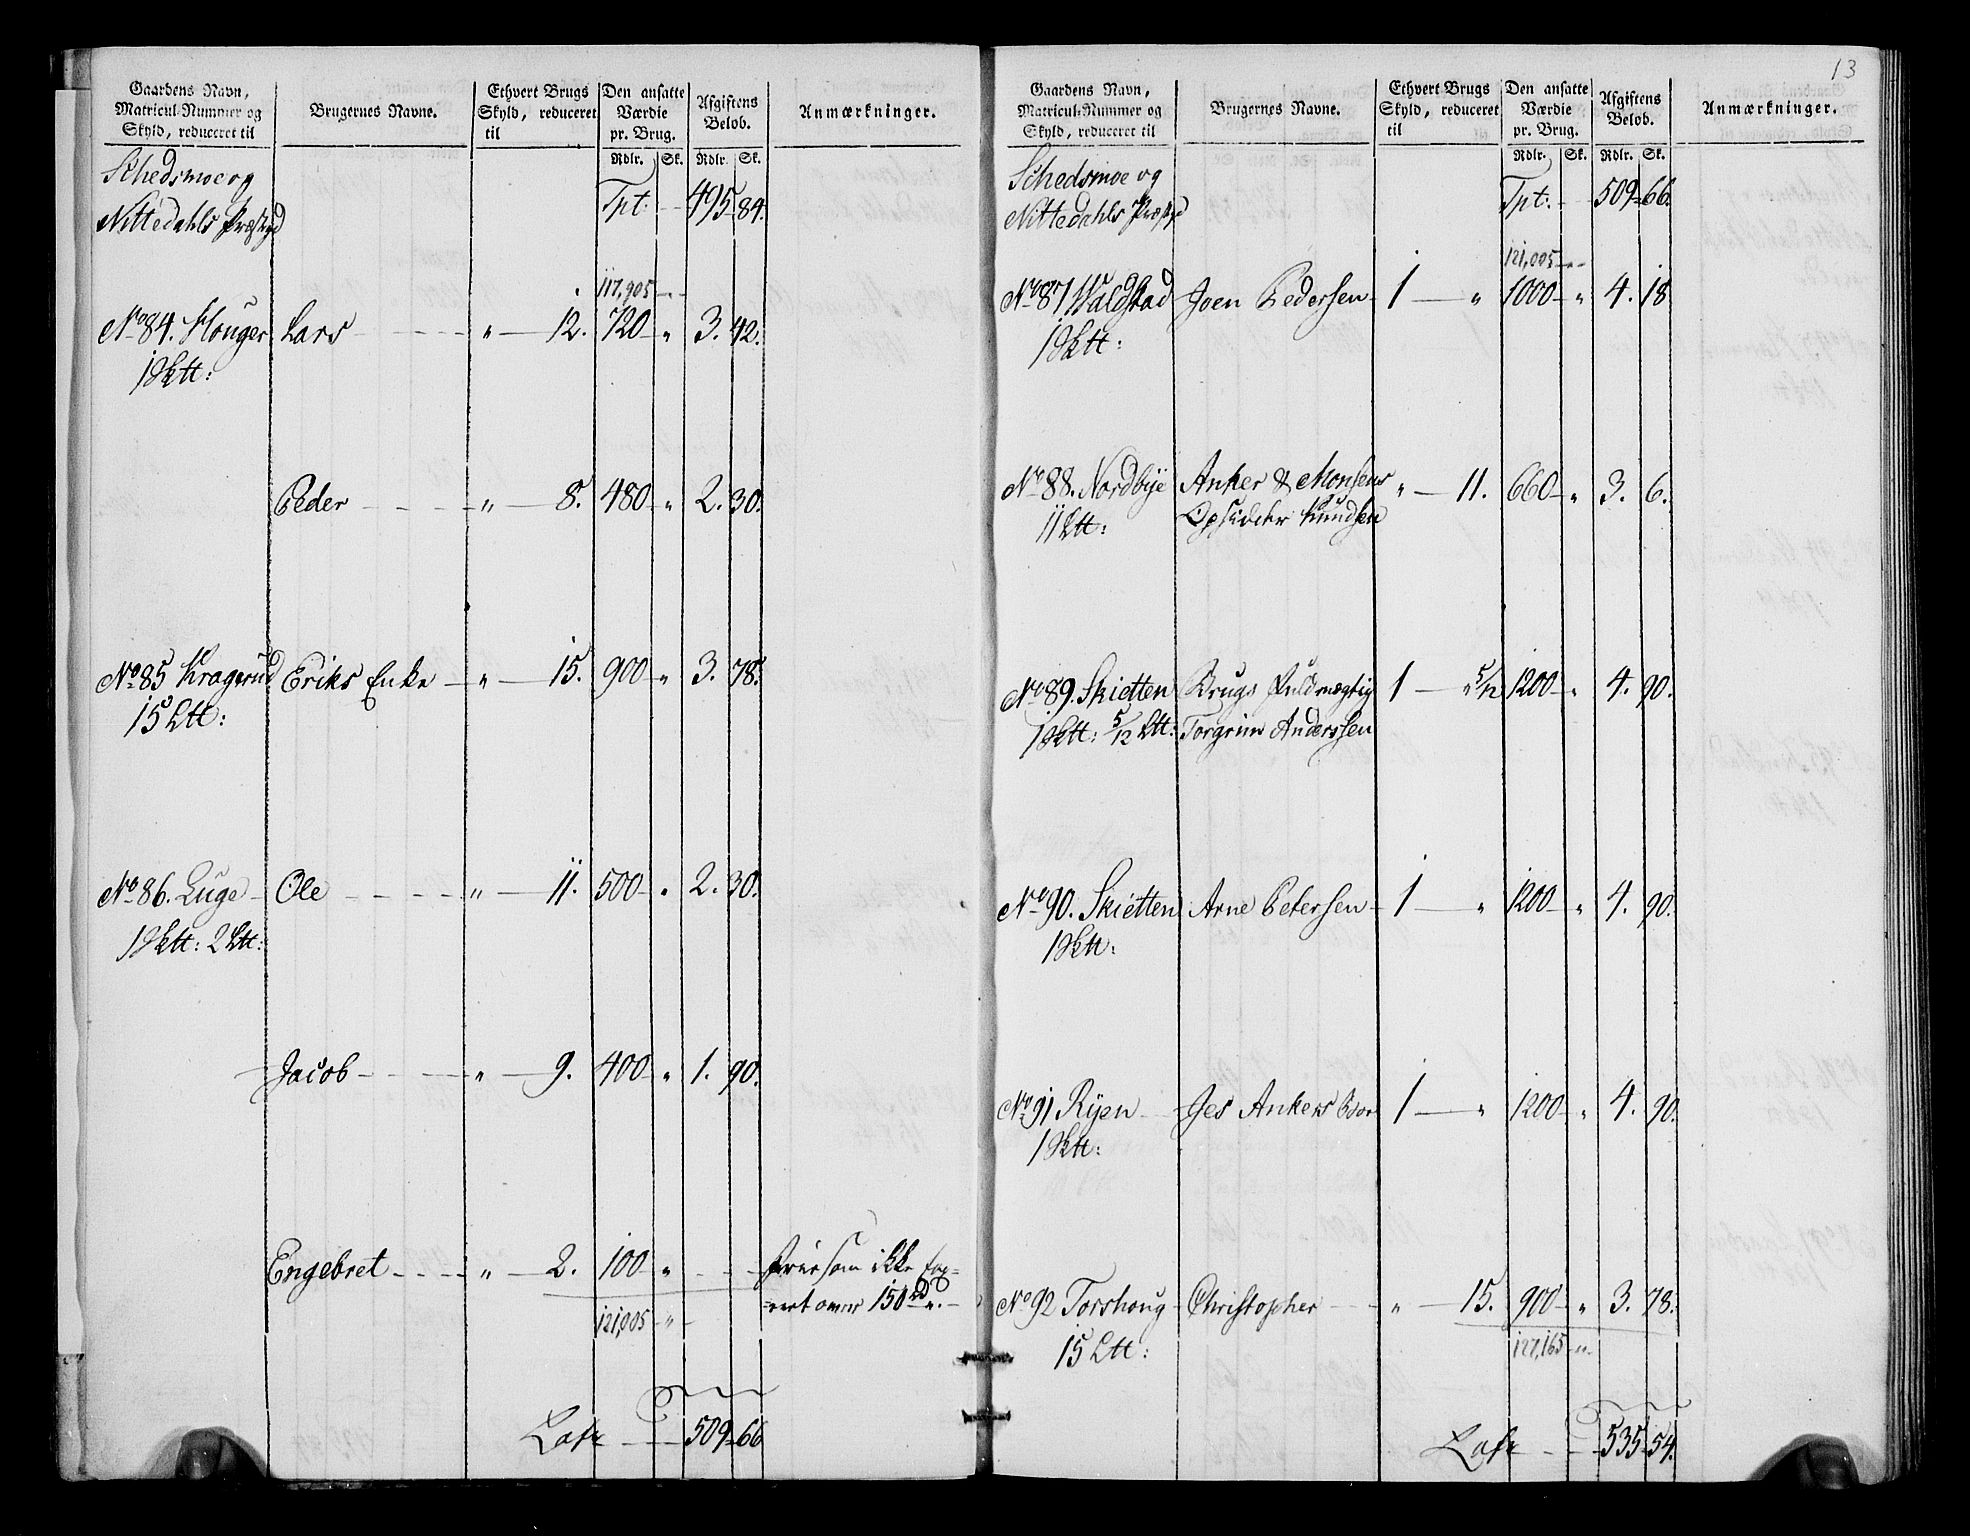 Gaardens Navn,
Matricul-Nummer og
Skyld, reduceret til
Brugernes Navne.
Ethvert Brugs
Skyld, reduceret
til
Den ansatte
Værdie
pr. Brug.
Rdlr. Sk.
Afgiftens
Beløb.
Rdlr. Sk.
Anmærkninger.
Schedsmoe og
Nittedahls Præstgd
Tpt: 495 84.
117,905
No 84. Houger Lars „ 12. 720 „ 3. 42.
1 Sktt:
Peder „ 8. 480 „ 2. 30.
No 85 Kragerud Eriks Enke „ 15. 900 „ 3. 78.
15 Ltt:
No 86. Luge Ole „ 11. 500 „ 2. 30.
1 Sktt: 2 Ltt:
Jacob „ 9. 400 „ 1. 90.
Engebret „ 2. 100 „ som ikke
over 150 rd
121,005 „
Late 509 66
13
Gaardens Navn,
Matricul-Nummer og
Skyld, reduceret til
Brugernes Navne.
Ethvert Brugs
Skyld, reduceret
til
Den ansatte
Værdie
pr. Brug.
Rdlr. Sk.
Afgiftens
Beløb.
Rdlr. Sk.
Anmærkninger.
Schedsmoe og
Nittedahls
Tpt: 509 66.
121,005
No 87 Waldstad Joen Pedersen 1 „ 1000 „ 4. 18
1 Sktt:
No 88. Nordbye Anker & Monsens „ 11. 660 „ 3. 6.
11 Ltt: Opsidder Knudsen
No 89. Skietten Brugs Fuldmægtig 1 „ 5/12 1200 „ 4. 90.
1 Sktt: 5/12 Ltt: Torgrim Anderssen
No 90. Skietten Arne Petersen 1 „ 1200 „ 4. 90.
1 Sktt:
No 91 Ryen Jes Ankers 1 „ 1200 „ 4. 90.
1 Sktt:
No 92 Torshoug Christopher „ 15. 900 „ 3. 78.
127,165 „
15 Ltt:
Late 535 54.